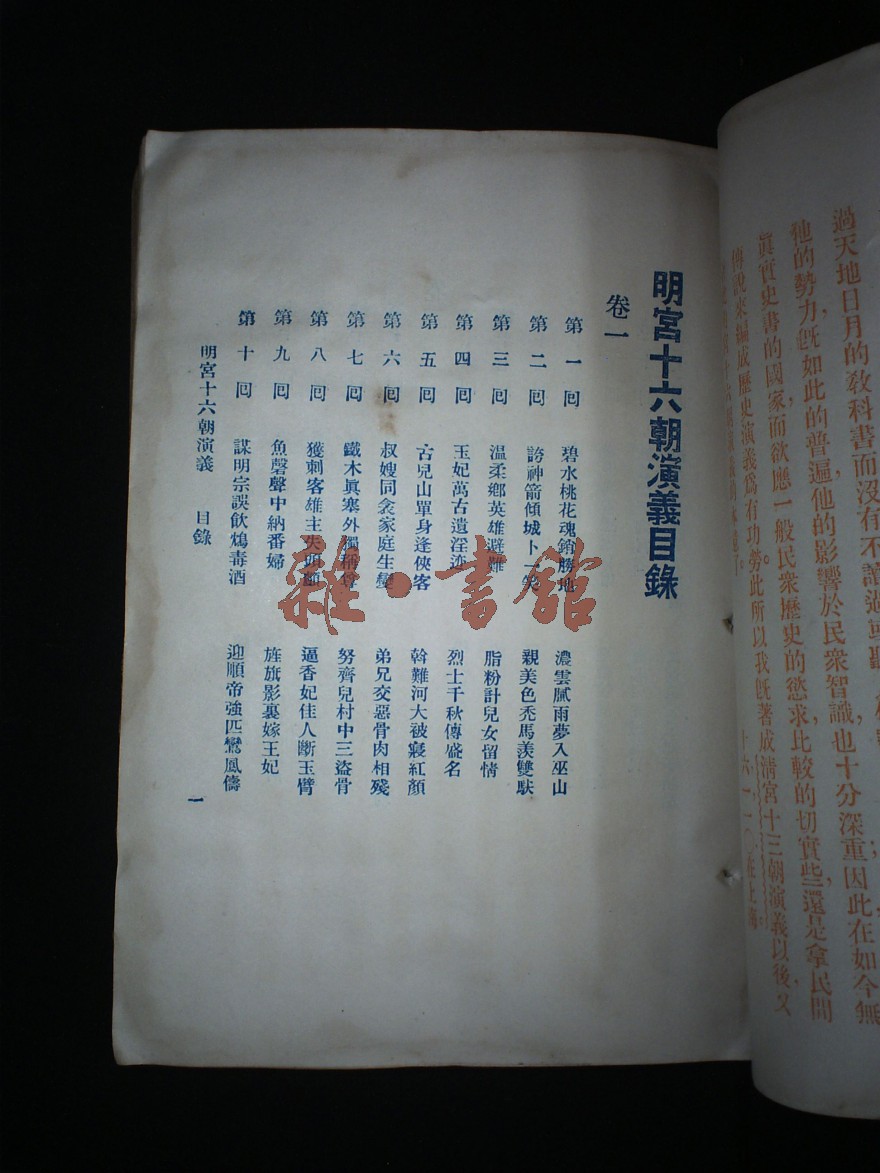 過天地日月的教科書而沒有不讀過或聽
他的勢力既如此的普遍他的影響於民衆智識,也十分深重因此在如今無
眞實史書的國家而欲應一般民衆歷史的慾求,比較的切實些,還是拿民間
傳說來編成歷史演義爲有功勞。此所以我既著成清宮十三朝演義以後,又
十六,一,一〇,在上海。
明宮十六朝演義目錄
卷一
第一回 碧水桃花魂銷勝地 濃雲膩雨夢入巫山
第二回 誇神箭傾城卜一笑 親美色禿馬羨雙馱
第三回 温柔鄉英雄避難 脂粉計兒女留情
第四回 玉妃萬古遺淫迹 烈士千秋傳盛名
第五回 古兒山單身逢俠客 斡難河大被寢紅顏
第六回 叔嫂同衾家庭生變 弟兄交惡骨肉相殘
第七回 鐵木眞塞外獨稱尊 努齊兒村中三盜骨
第八回 獲刺客雄主失頭顱 逼香妃佳人斷玉臂
第九回 魚磬聲中納番婦 旌旗影裏嫁王妃
第十回 謀明宗誤飲鴆毒酒 迎順帝強匹鸞鳳儔
明宮十六朝演義 目錄 一
雜·書館